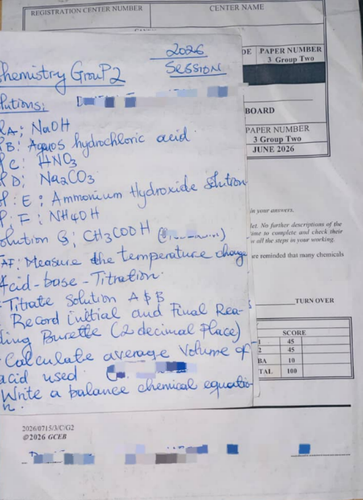 REGISTRATION CENTER NUMBER
CENTER NAME
2026
SESSION
Chemistry GrouP 2
lutions:
A: NaOH
B: Aquos hydrochloric acid
C: HNO3
D: Na2CO3
E: Ammonium Hydroxide Solution
F: NH4OH
olution G: CH3COOH
F: Measure the temperature change
Acid-base-Titration
Titrate Solution A & B
Record Initial and Final Rea-
ding Burette (2 decimal Place)
Calculate average Volume of
acid used
Write a balance chemical equatio-
n.
DE PAPER NUMBER
3 Group Two
BOARD
PAPER NUMBER
3 Group Two
JUNE 2026
in your answers.
No further descriptions of the
time to complete and check their
all the steps in your working.
are reminded that many chemicals
TURN OVER
SCORE
1 45
2 45
BA 10
TAL 100
2026/0715/3/C/G2
@2026 GCEB